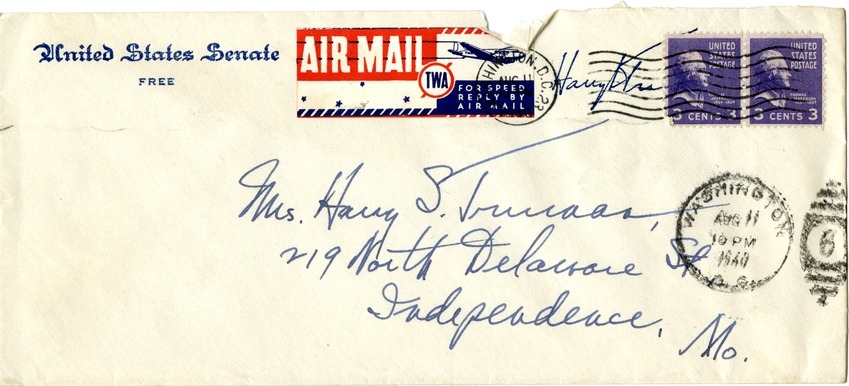 United States Senate
FREE
AIR MAIL
TWA
FOR SPEED
REPLY BY
AIR MAIL
HINGTON, D.C. 23
AUG 11
Harry
UNITED
STATES
POSTAGE
3 CENTS 3
UNITED
STATES
POSTAGE
3 CENTS 3
Mrs. Harry S. Truman,
219 North Delaware St
Independence,
Mo.
WASHINGTON
AUG 11
10 PM
1940
D.C.
6